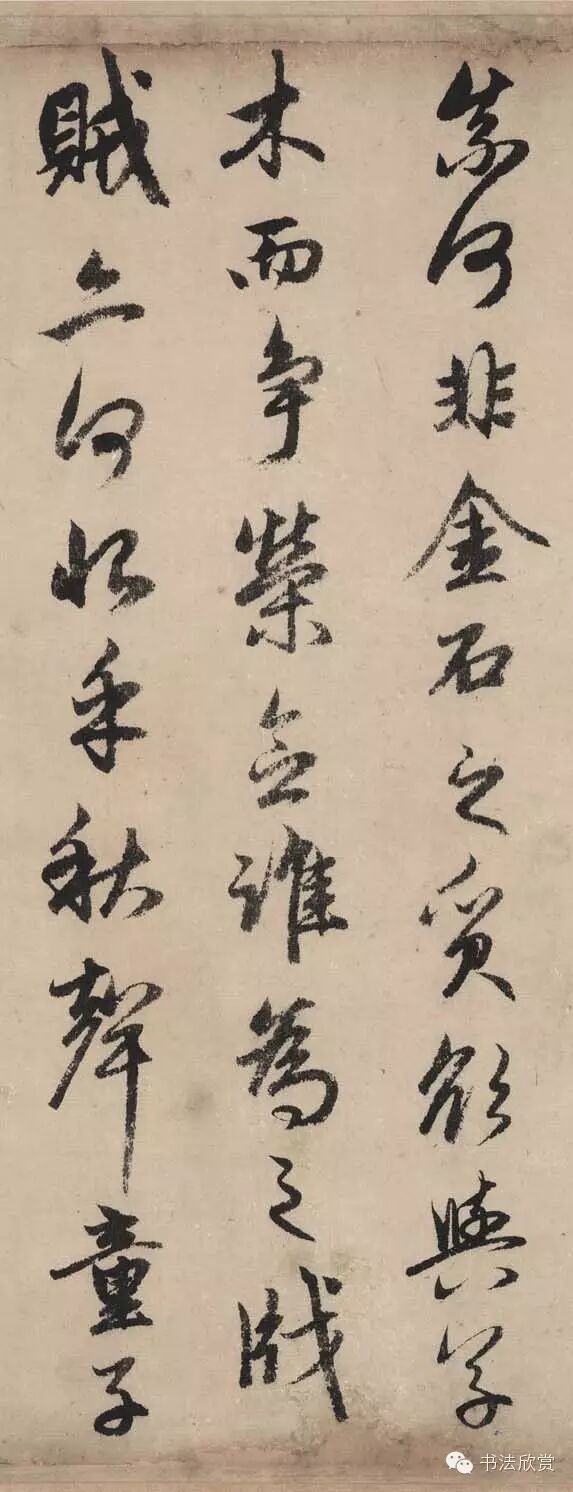 奈何非金石之質欲與草
木而争榮念誰為之戕
賊亦何恨乎秋聲童子
书法欣赏